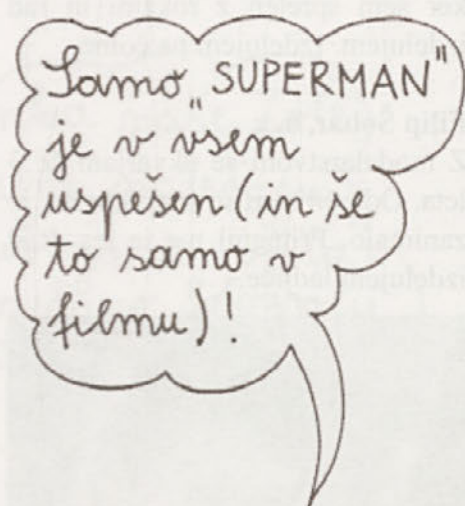 Samo „SUPERMAN"
je v vsem
uspešen (in še
to samo v
filmu)!